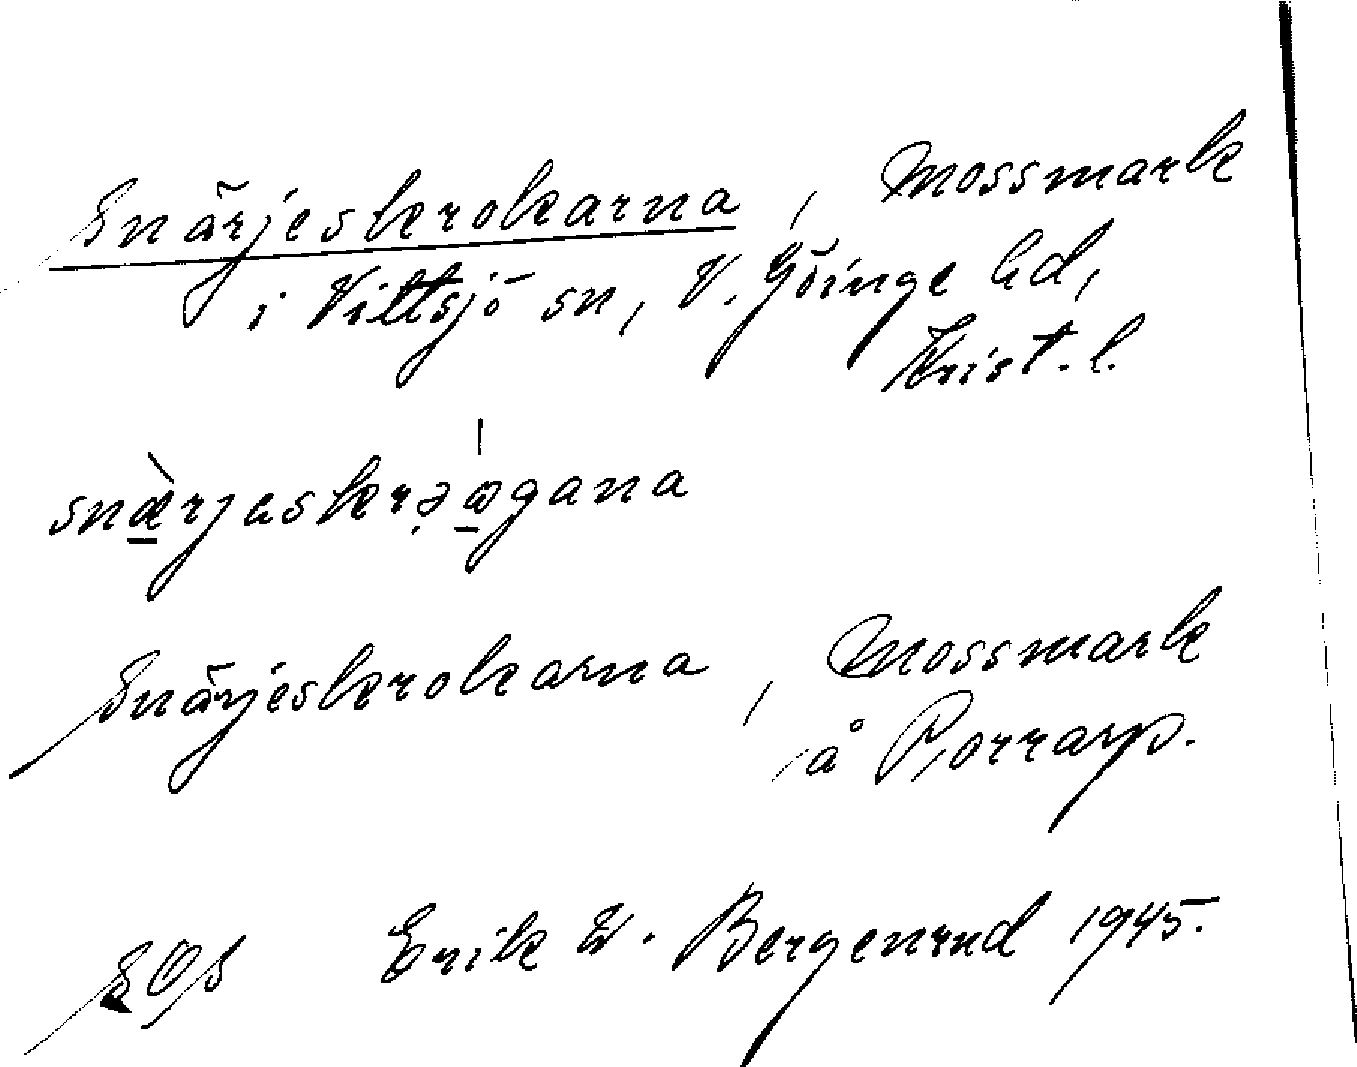 Snärjeskrokarna, Mossmark
i Vittsjö sn, V. Göinge hd,
Krist. l.
snærjaskrəωgana
Snärjeskrokarna, Mossmark
å Porrarp.
SOS Erik W. Bergenrud 1945.